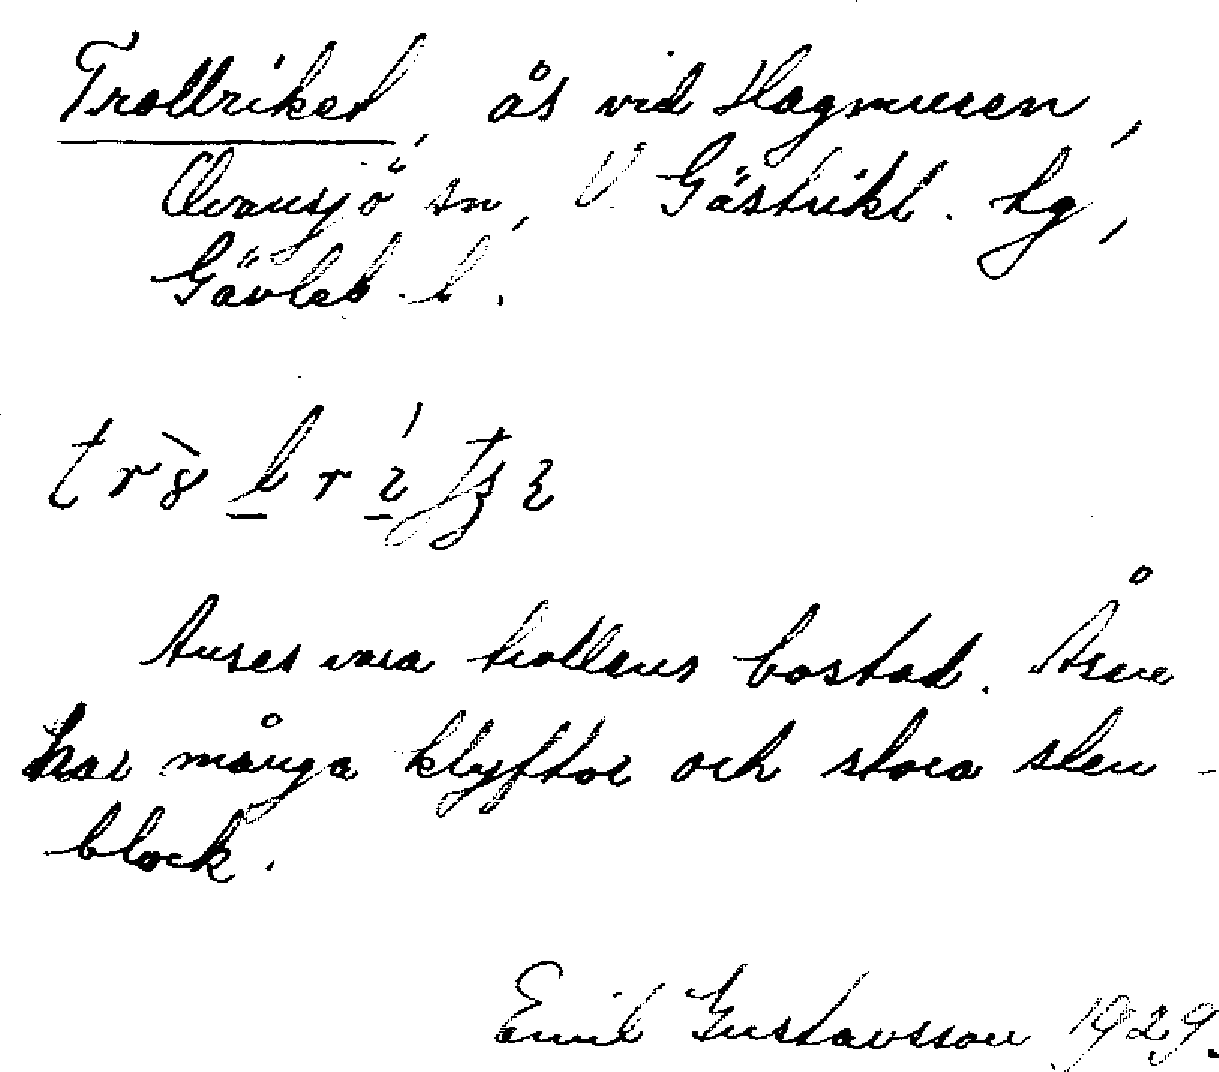 Trollriket, ås vid Hagmuren,
Ovansjö sn, V. Gästrikl. tg,
Gävleb. l.
Anses vara trollens bostad. Åsen
har många klyftor och stora sten-
block.
Emil Gustavsson 1929.